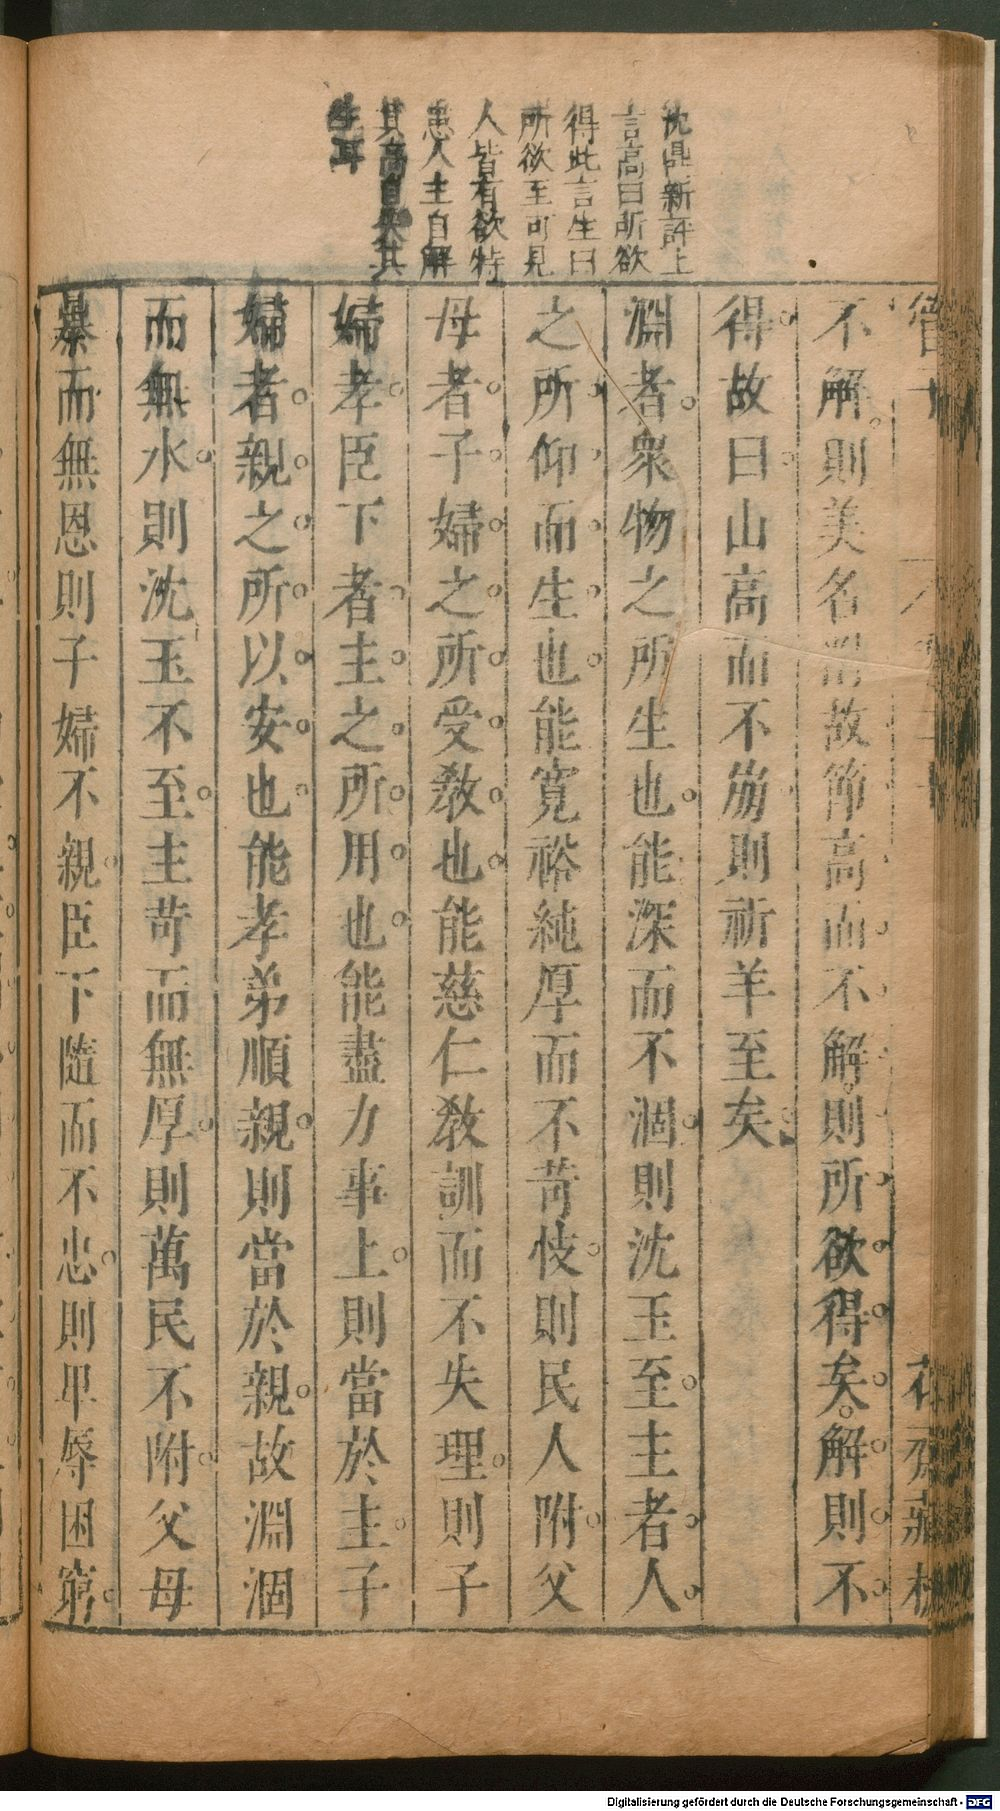 沈鼎新評上
言高曰所欲
得此言生曰
所欲至可見
人皆有欲特
患人主自解
其高自失其
生耳
管子
花齋藏板
不解則美名附故節高而不解則所欲得矣解則不
得故曰山高而不崩則祈羊至矣
淵者衆物之所生也能深而不涸則沈玉至主者人
之所仰而生也能寬裕純厚而不苛忮則民人附父
母者子婦之所受敎也能慈仁敎訓而不失理則子
婦孝臣下者主之所用也能盡力事上則當於主子
婦者親之所以安也能孝弟順親則當於親故淵涸
而無水則沈玉不至主苛而無厚則萬民不附父母
暴而無恩則子婦不親臣下隨而不忠則卑辱困窮
Digitalisierung gefördert durch die Deutsche Forschungsgemeinschaft - DFG